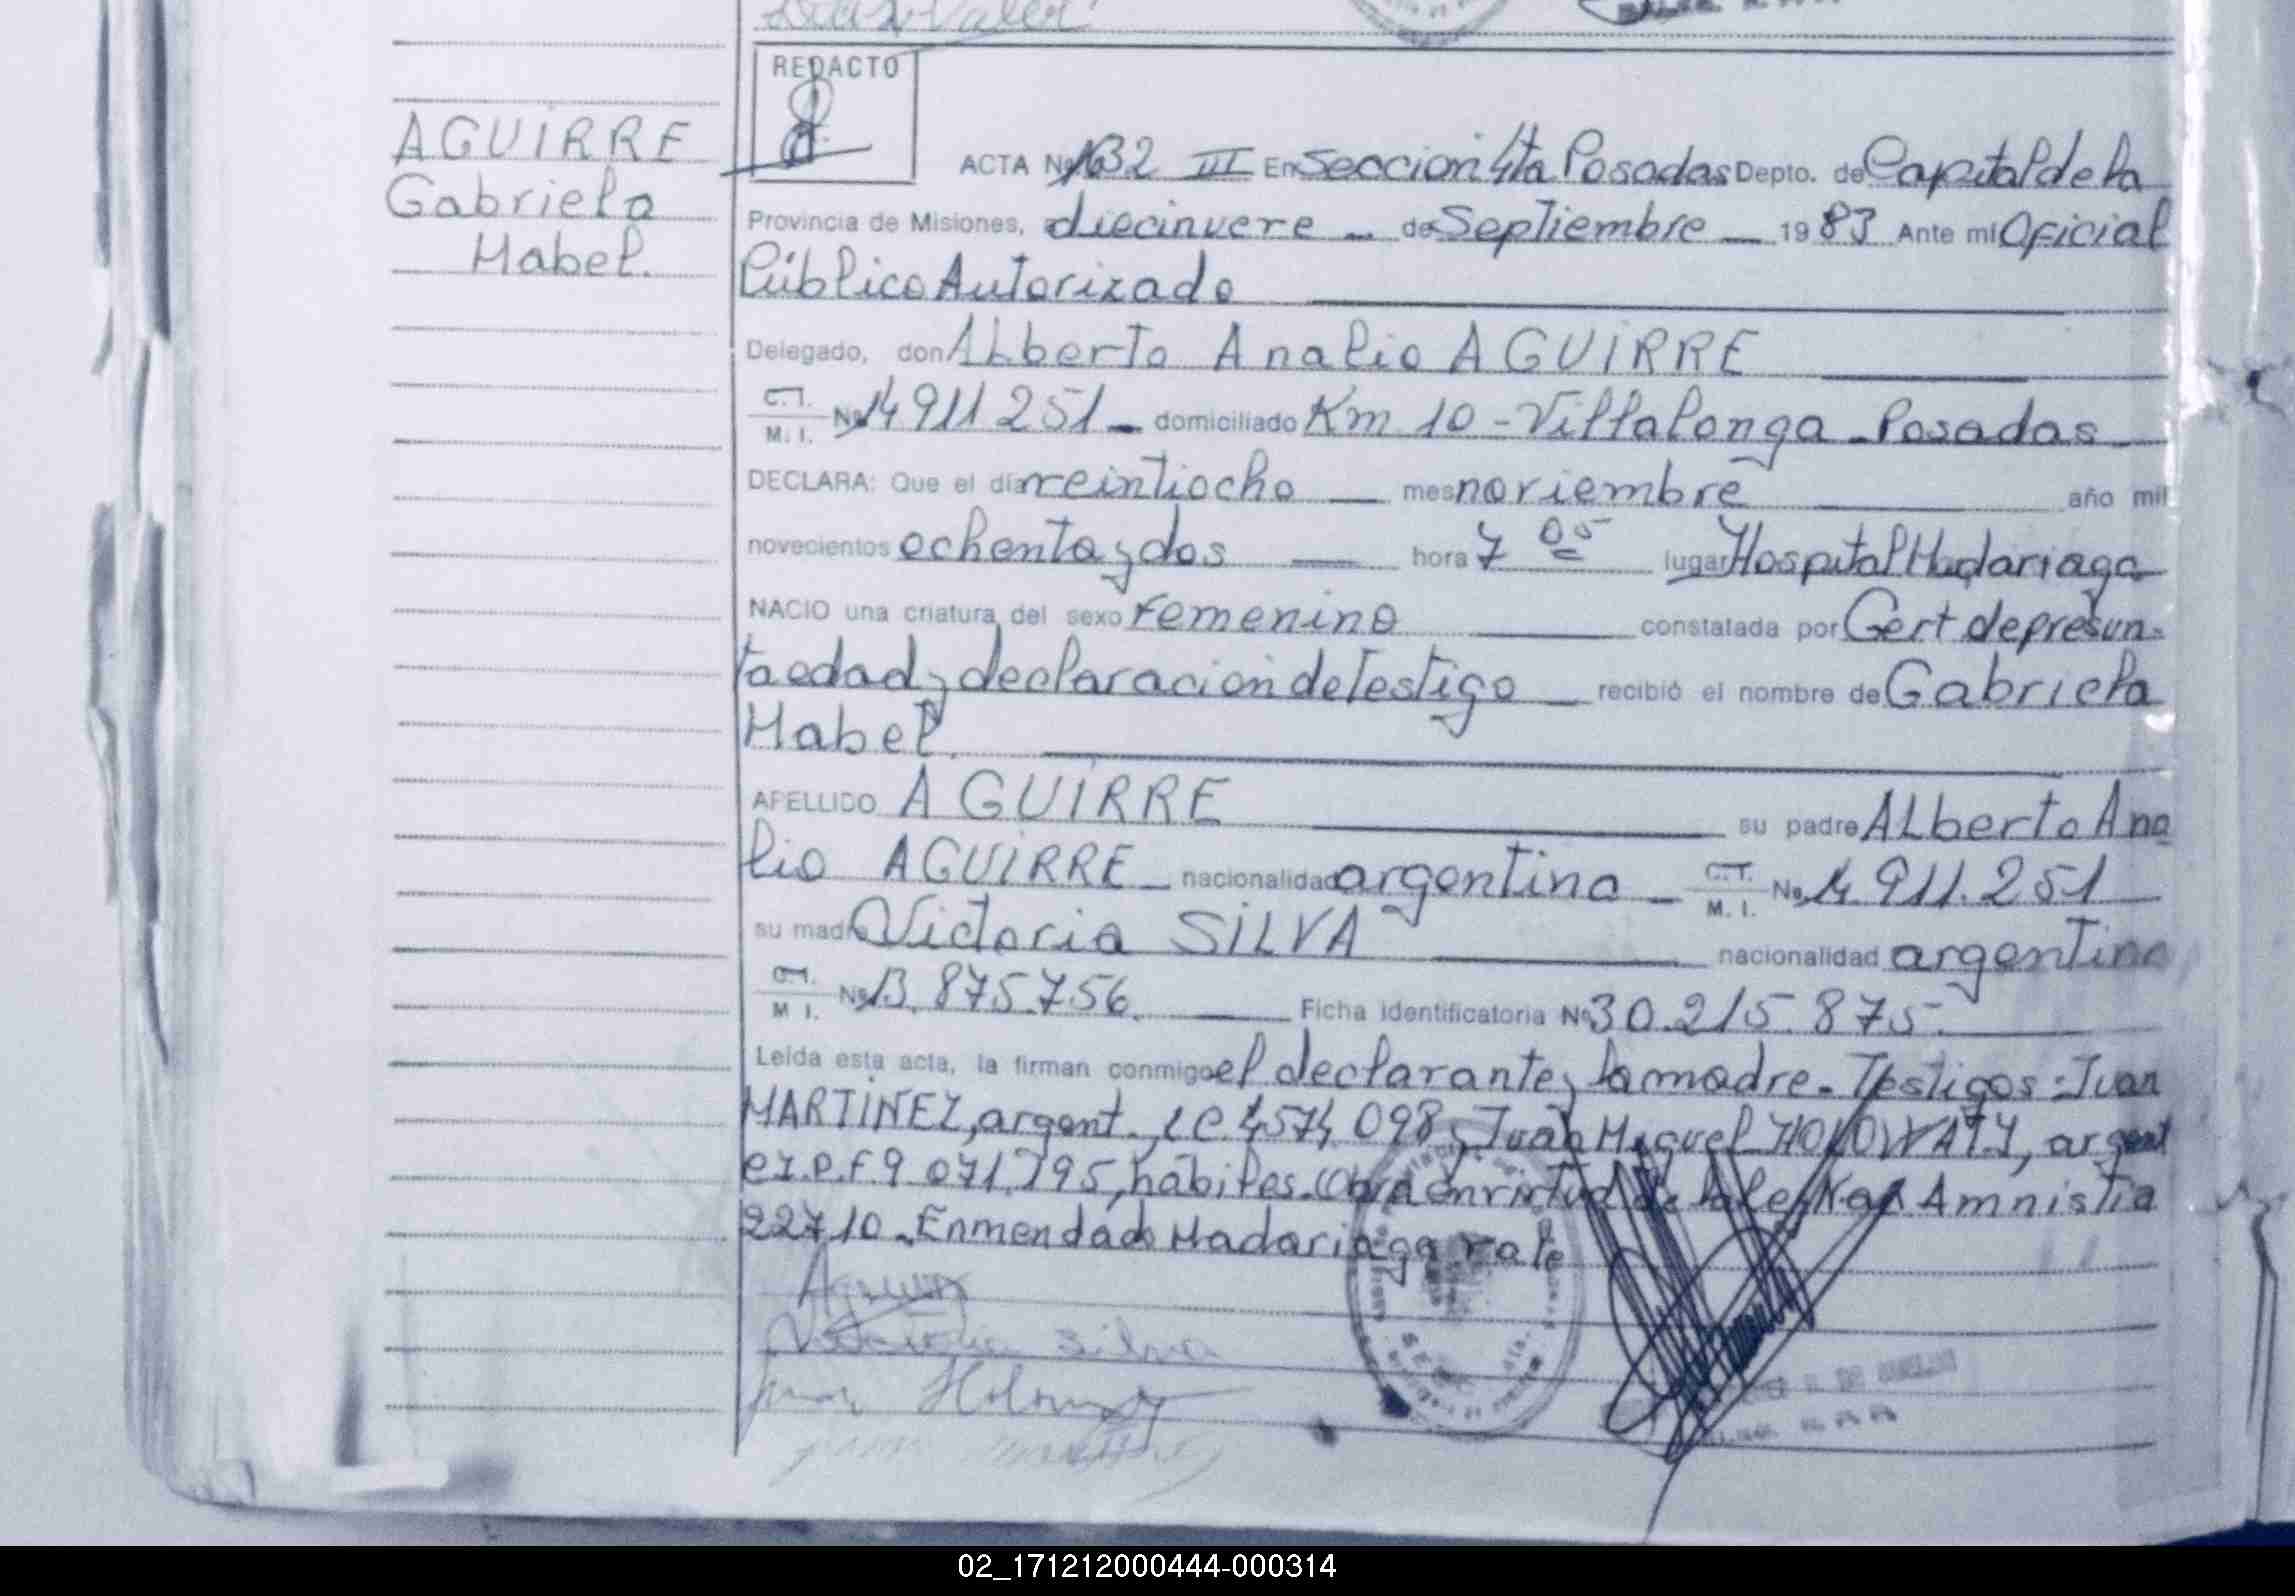 REDACTO
AGUIRRE
Gabriela
Mabel.
ACTA Nº 132 III En Seccion 4ta Posadas Depto. de Capital de la
Provincia de Misiones, diecinueve - de Septiembre - 1983 Ante mi Oficial
Público Autorizado
Delegado, don Alberto Analio AGUIRRE
C.I. M. I. Nº 14 911 251 - domiciliado Km 10 - Villalonga - Posadas
DECLARA: Que el día veintiocho mes noviembre año mil
novecientos ochenta y dos hora 7 05 lugar Hospital Madariaga
NACIO una criatura del sexo femenino constatada por Cert de presun-
ta edad y declaración de Testigo recibió el nombre de Gabriela
Mabel.
APELLIDO AGUIRRE su padre Alberto Ana
lio AGUIRRE - nacionalidad argentina - C.I. M. I. Nº 14.911.251
su madre Victoria SILVA nacionalidad argentina
C.I. M I. Nº 13.875.756. Ficha identificatoria Nº 30.215.875.
Leída esta acta, la firman conmigo el declarante y la madre - Testigos: Juan
MARTINEZ, argent. LE 4574 098 y Juan Miguel HOLOWATY, argent
CI.P.F 9 071.795, hábiles. Obra en virtud de la ley Amnistia
22710 - Enmendado Madariaga vale
Victoria Silva
02_171212000444-000314